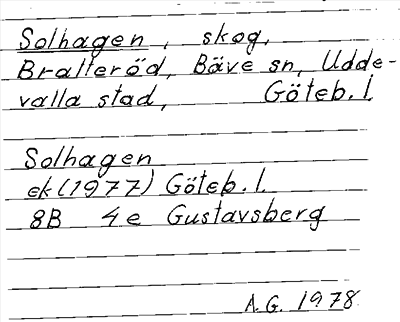 Solhagen, skog,
Bratteröd, Bäve sn, Udde-
valla stad, Göteb. l.
Solhagen
ek (1977) Göteb. l.
8B 4e Gustavsberg
A.G. 1978